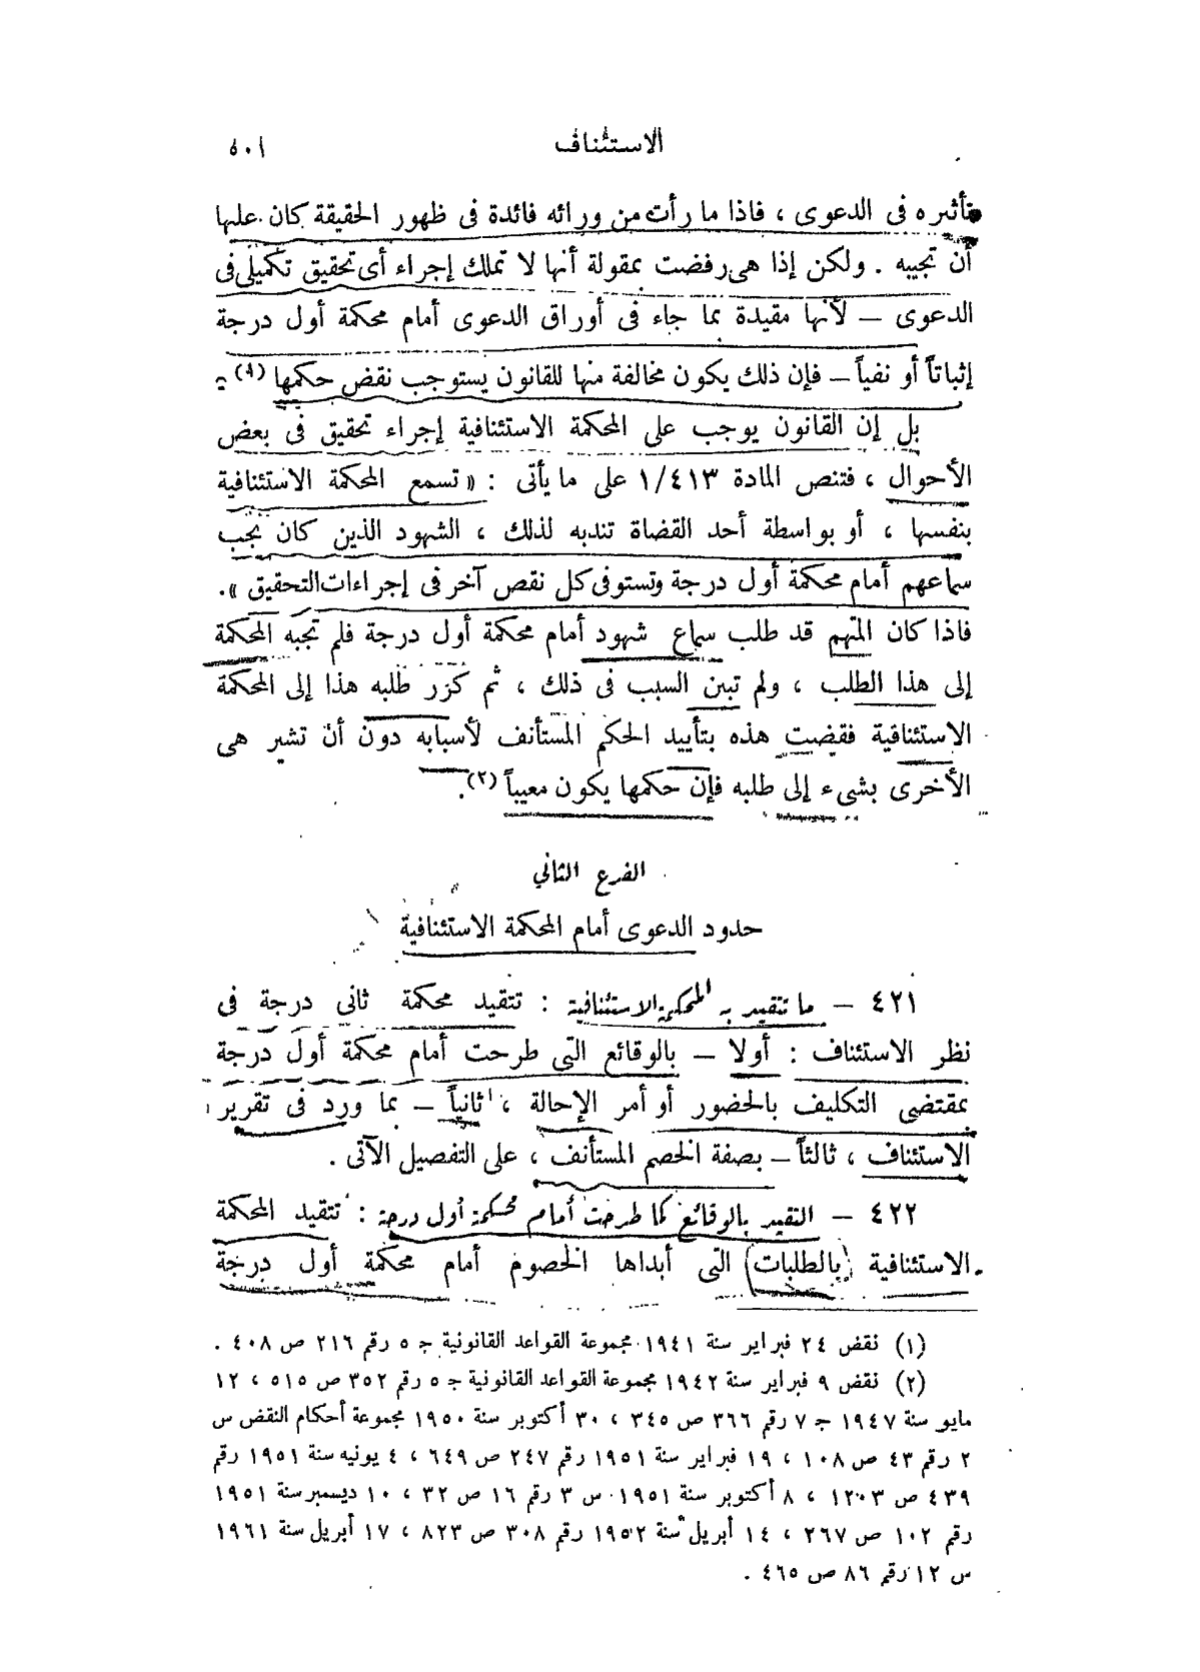 الاستئناف ٥٠١
تأثيره فى الدعوى ، فاذا ما رأت من ورائه فائدة فى ظهور الحقيقة كان عليها
أن تجيبه . ولكن إذا هى رفضت بمقولة أنها لا تملك إجراء أى تحقيق تكميلى فى
الدعوى – لأنها مقيدة بما جاء فى أوراق الدعوى أمام محكمة أول درجة
إثباتاً أو نفياً – فإن ذلك يكون مخالفة منها للقانون يستوجب نقض حكمها (١)
بل إن القانون يوجب على المحكمة الاستئنافية إجراء تحقيق فى بعض
الأحوال ، فتنص المادة ١/٤١٣ على ما يأتى : « تسمع المحكمة الاستئنافية
بنفسها ، أو بواسطة أحد القضاة تندبه لذلك ، الشهود الذين كان يجب
سماعهم أمام محكمة أول درجة وتستوفى كل نقص آخر فى إجراءات التحقيق » .
فاذا كان المتهم قد طلب سماع شهود أمام محكمة أول درجة فلم تجبه المحكمة
إلى هذا الطلب ، ولم تبين السبب فى ذلك ، ثم كرر طلبه هذا إلى المحكمة
الاستئنافية فقضيت هذه بتأييد الحكم المستأنف لأسبابه دون أن تشير هى
الأخرى بشىء إلى طلبه فإن حكمها يكون معيباً (٢) .
الفرع الثاني
حدود الدعوى أمام المحكمة الاستئنافية
٤٢١ – ما تتقيد به المحكمة الاستئنافية : تتقيد محكمة ثانى درجة فى
نظر الاستئناف : أولا – بالوقائع التى طرحت أمام محكمة أول درجة
بمقتضى التكليف بالحضور أو أمر الإحالة ، ثانياً – بما ورد فى تقرير
الاستئناف ، ثالثاً – بصفة الخصم المستأنف ، على التفصيل الآتى .
٤٢٢ – التقيد بالوقائع كما طرحت أمام محكمة أول درجة : تتقيد المحكمة
الاستئنافية (بالطلبات) التى أبداها الخصوم أمام محكمة أول درجة
(١) نقض ٢٤ فبراير سنة ١٩٤١ مجموعة القواعد القانونية ج ٥ رقم ٢١٦ ص ٤٠٨ .
(٢) نقض ٩ فبراير سنة ١٩٤٢ مجموعة القواعد القانونية ج ٥ رقم ٣٥٢ ص ٥١٥ ، ١٢
مايو سنة ١٩٤٧ ج ٧ رقم ٣٦٦ ص ٣٤٥ ، ٣٠ أكتوبر سنة ١٩٥٠ مجموعة أحكام النقض س
٢ رقم ٤٣ ص ١٠٨ ، ١٩ فبراير سنة ١٩٥١ رقم ٢٤٧ ص ٦٤٩ ، ٤ يونيه سنة ١٩٥١ رقم
٤٣٩ ص ١٢٠٣ ، ٨ أكتوبر سنة ١٩٥١ س ٣ رقم ١٦ ص ٣٢ ، ١٠ ديسمبر سنة ١٩٥١
رقم ١٠٢ ص ٢٦٧ ، ١٤ أبريل سنة ١٩٥٢ رقم ٣٠٨ ص ٨٢٣ ، ١٧ أبريل سنة ١٩٦١
س ١٢ رقم ٨٦ ص ٤٦٥ .